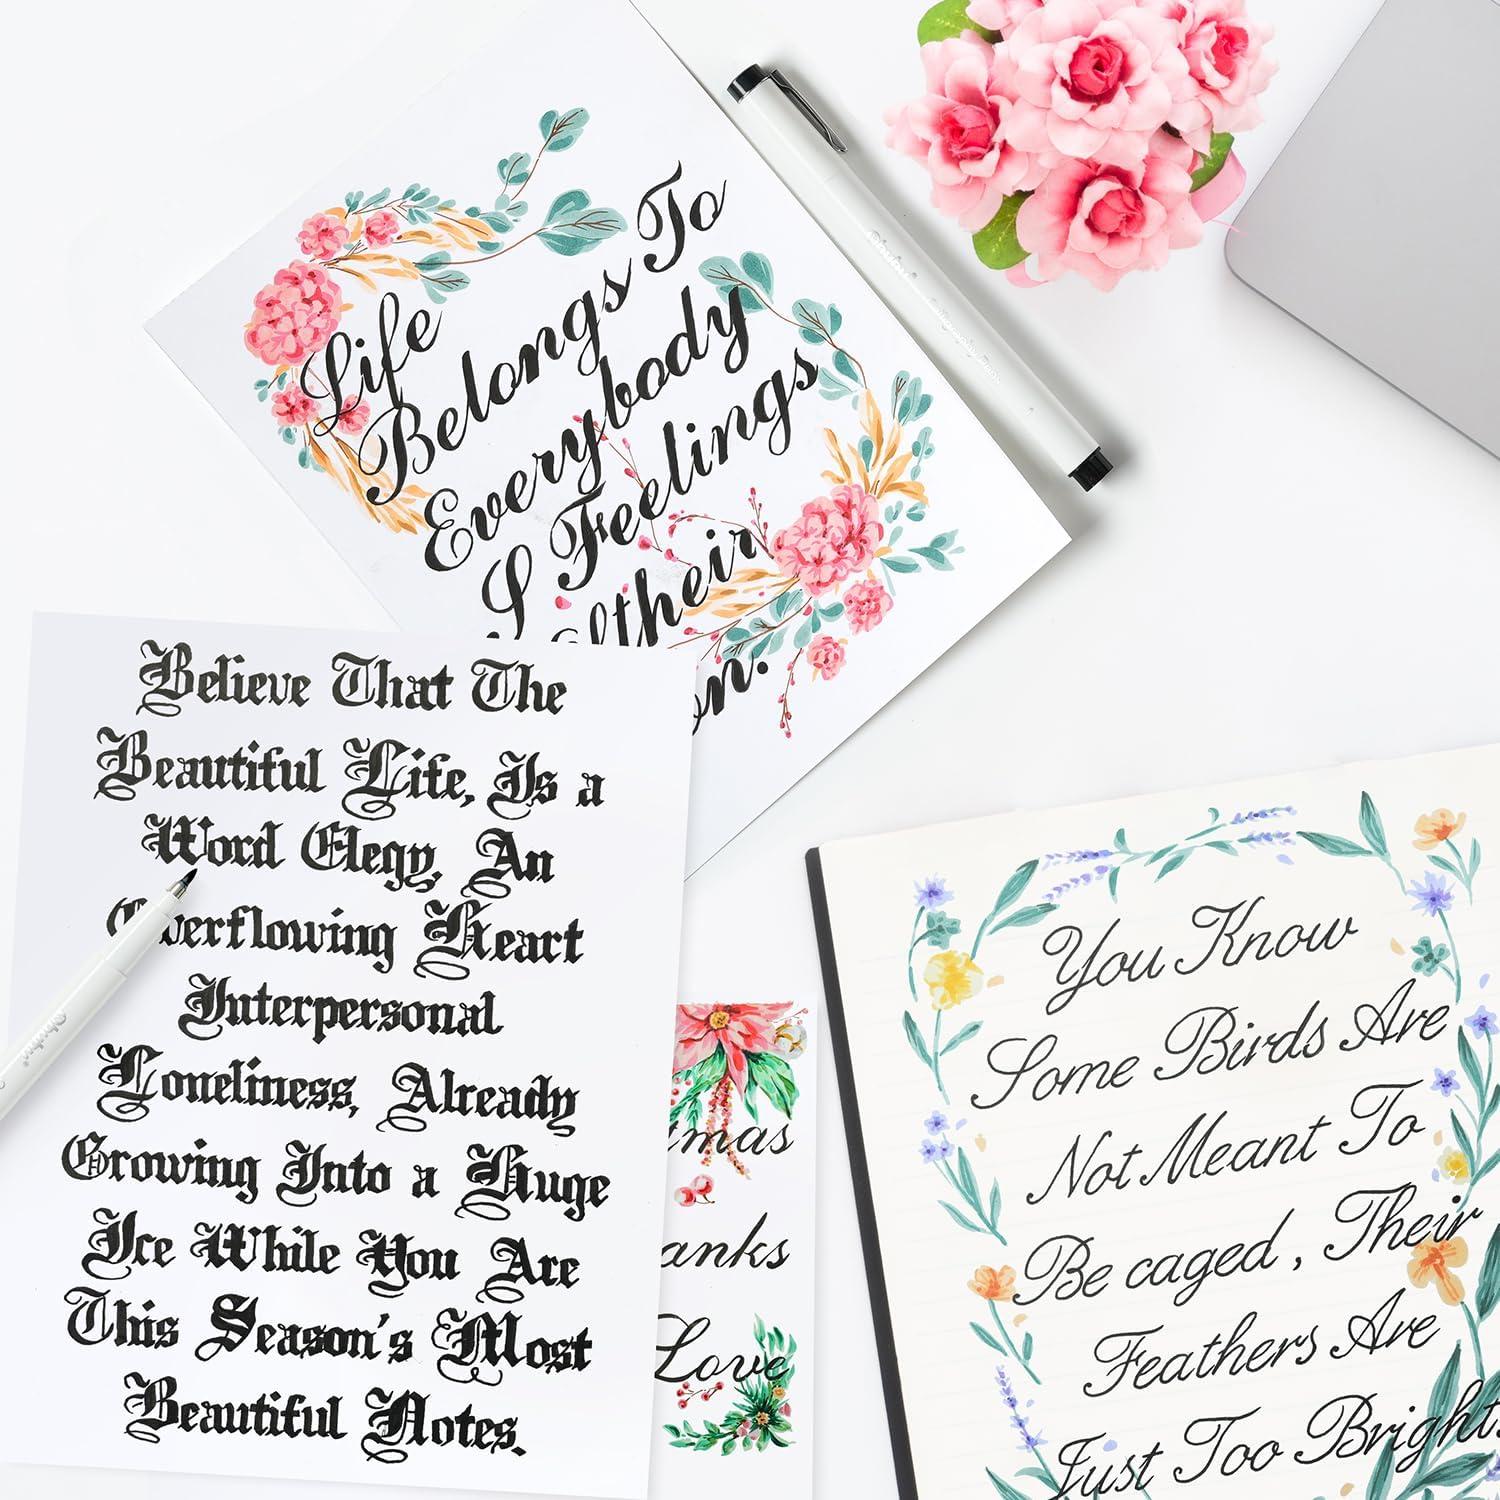 Life
Belongs To
Everybody
I Feelings
their
on.
Believe That The
Beautiful Life, Is a
Word Elegy, An
Overflowing Heart
Interpersonal
Loneliness, Already
Growing Into a Huge
Ice While You Are
This Season's Most
Beautiful Notes.
mas
anks
Love
You Know
Some Birds Are
Not Meant To
Be caged, Their
Feathers Are
Just Too Bright.
Ohuhu
Ohuhu Calligraphy Pen